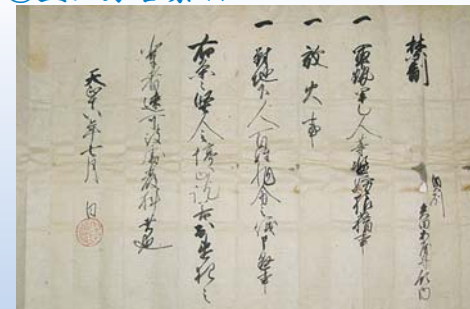 禁制
一 軍勢甲乙人等濫妨狼藉事
一 放火事
一 対地下人百姓非分之儀申懸事
右条々堅令停止訖若於違犯之
輩者速可被処厳科者也
天正十八年七月 日